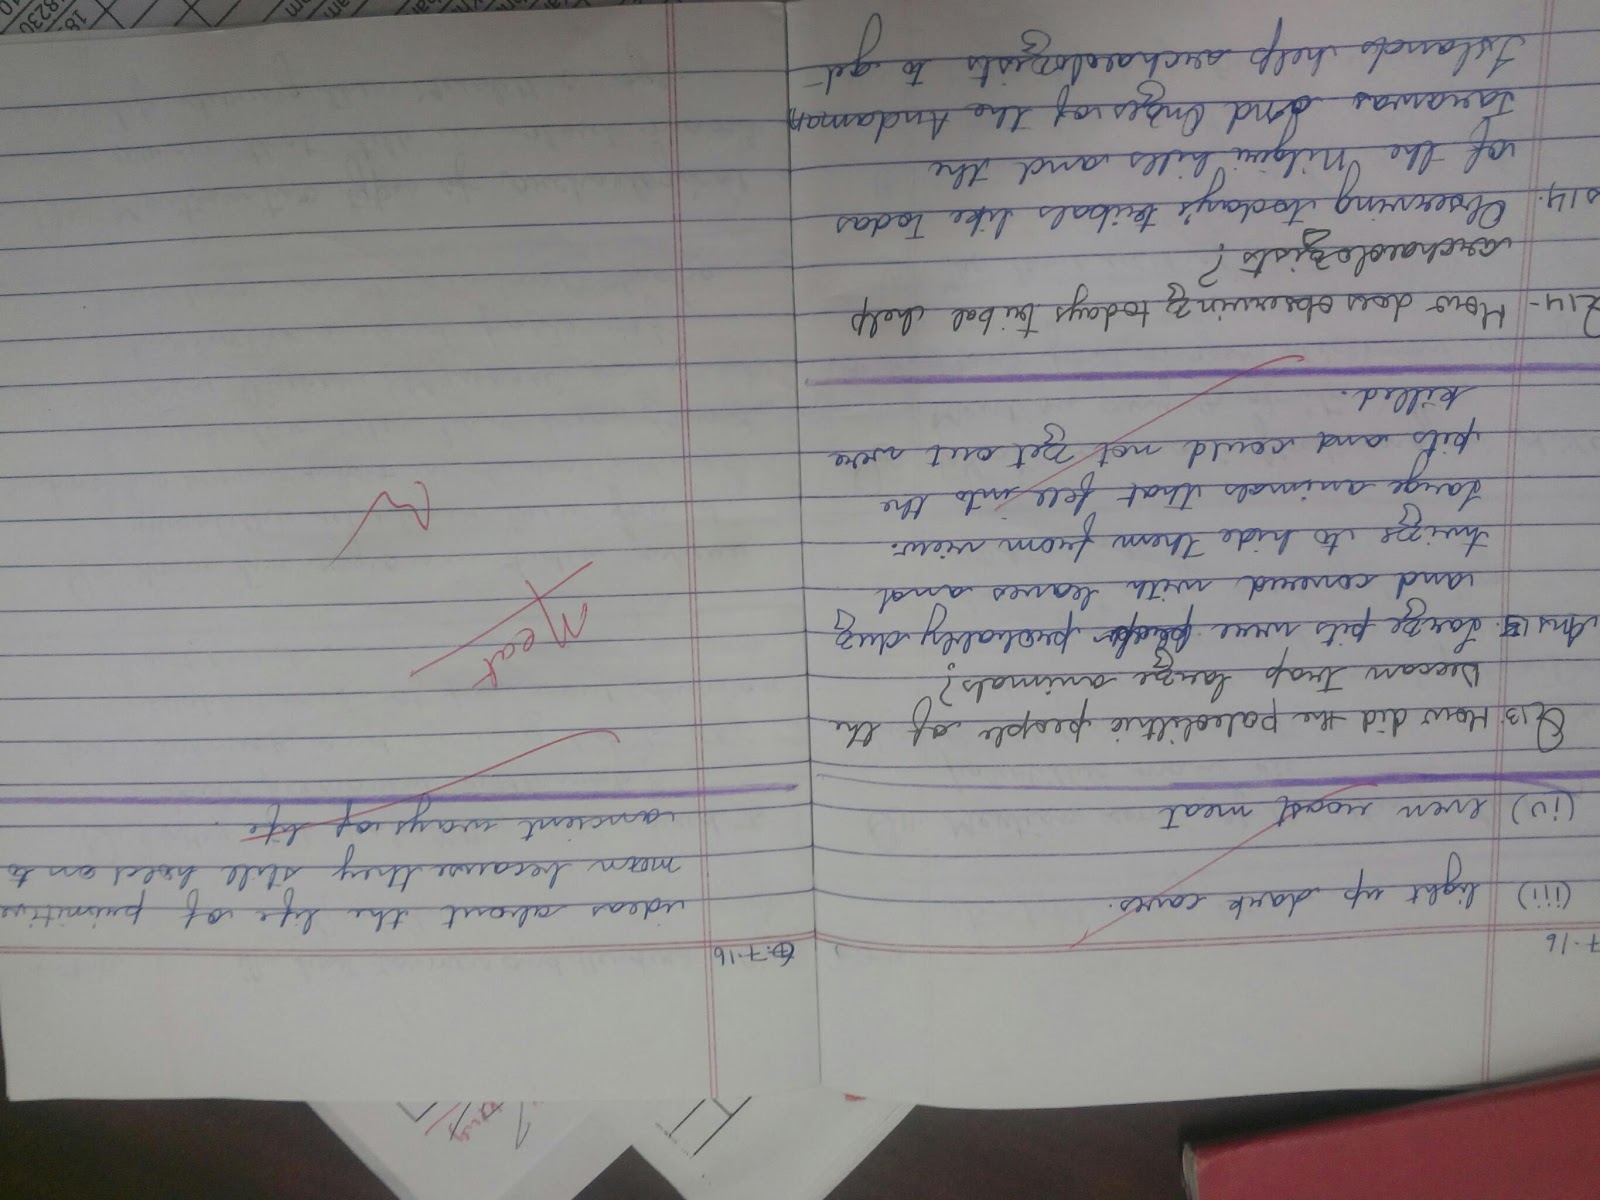 7.16
(iii) light up dark caves.
(iv) even roast meat
Q13. How did the paleolithic people of the
Deccan trap large animals?
Ans 13. Large pits were probably dug
and covered with leaves and
twigs to hide them from view.
Large animals that fell into the
pits and could not get out were
killed.
Q14- How does observing todays tribal help
archaeologists?
s14. Observing today's tribals like Todas
of the Nilgiri hills and the
Jarawas and Onges of the Andaman
Islands help archaeologists to get
7.16
ideas about the life of primitive
man because they still hold on to
ancient ways of life.
Neat
18230